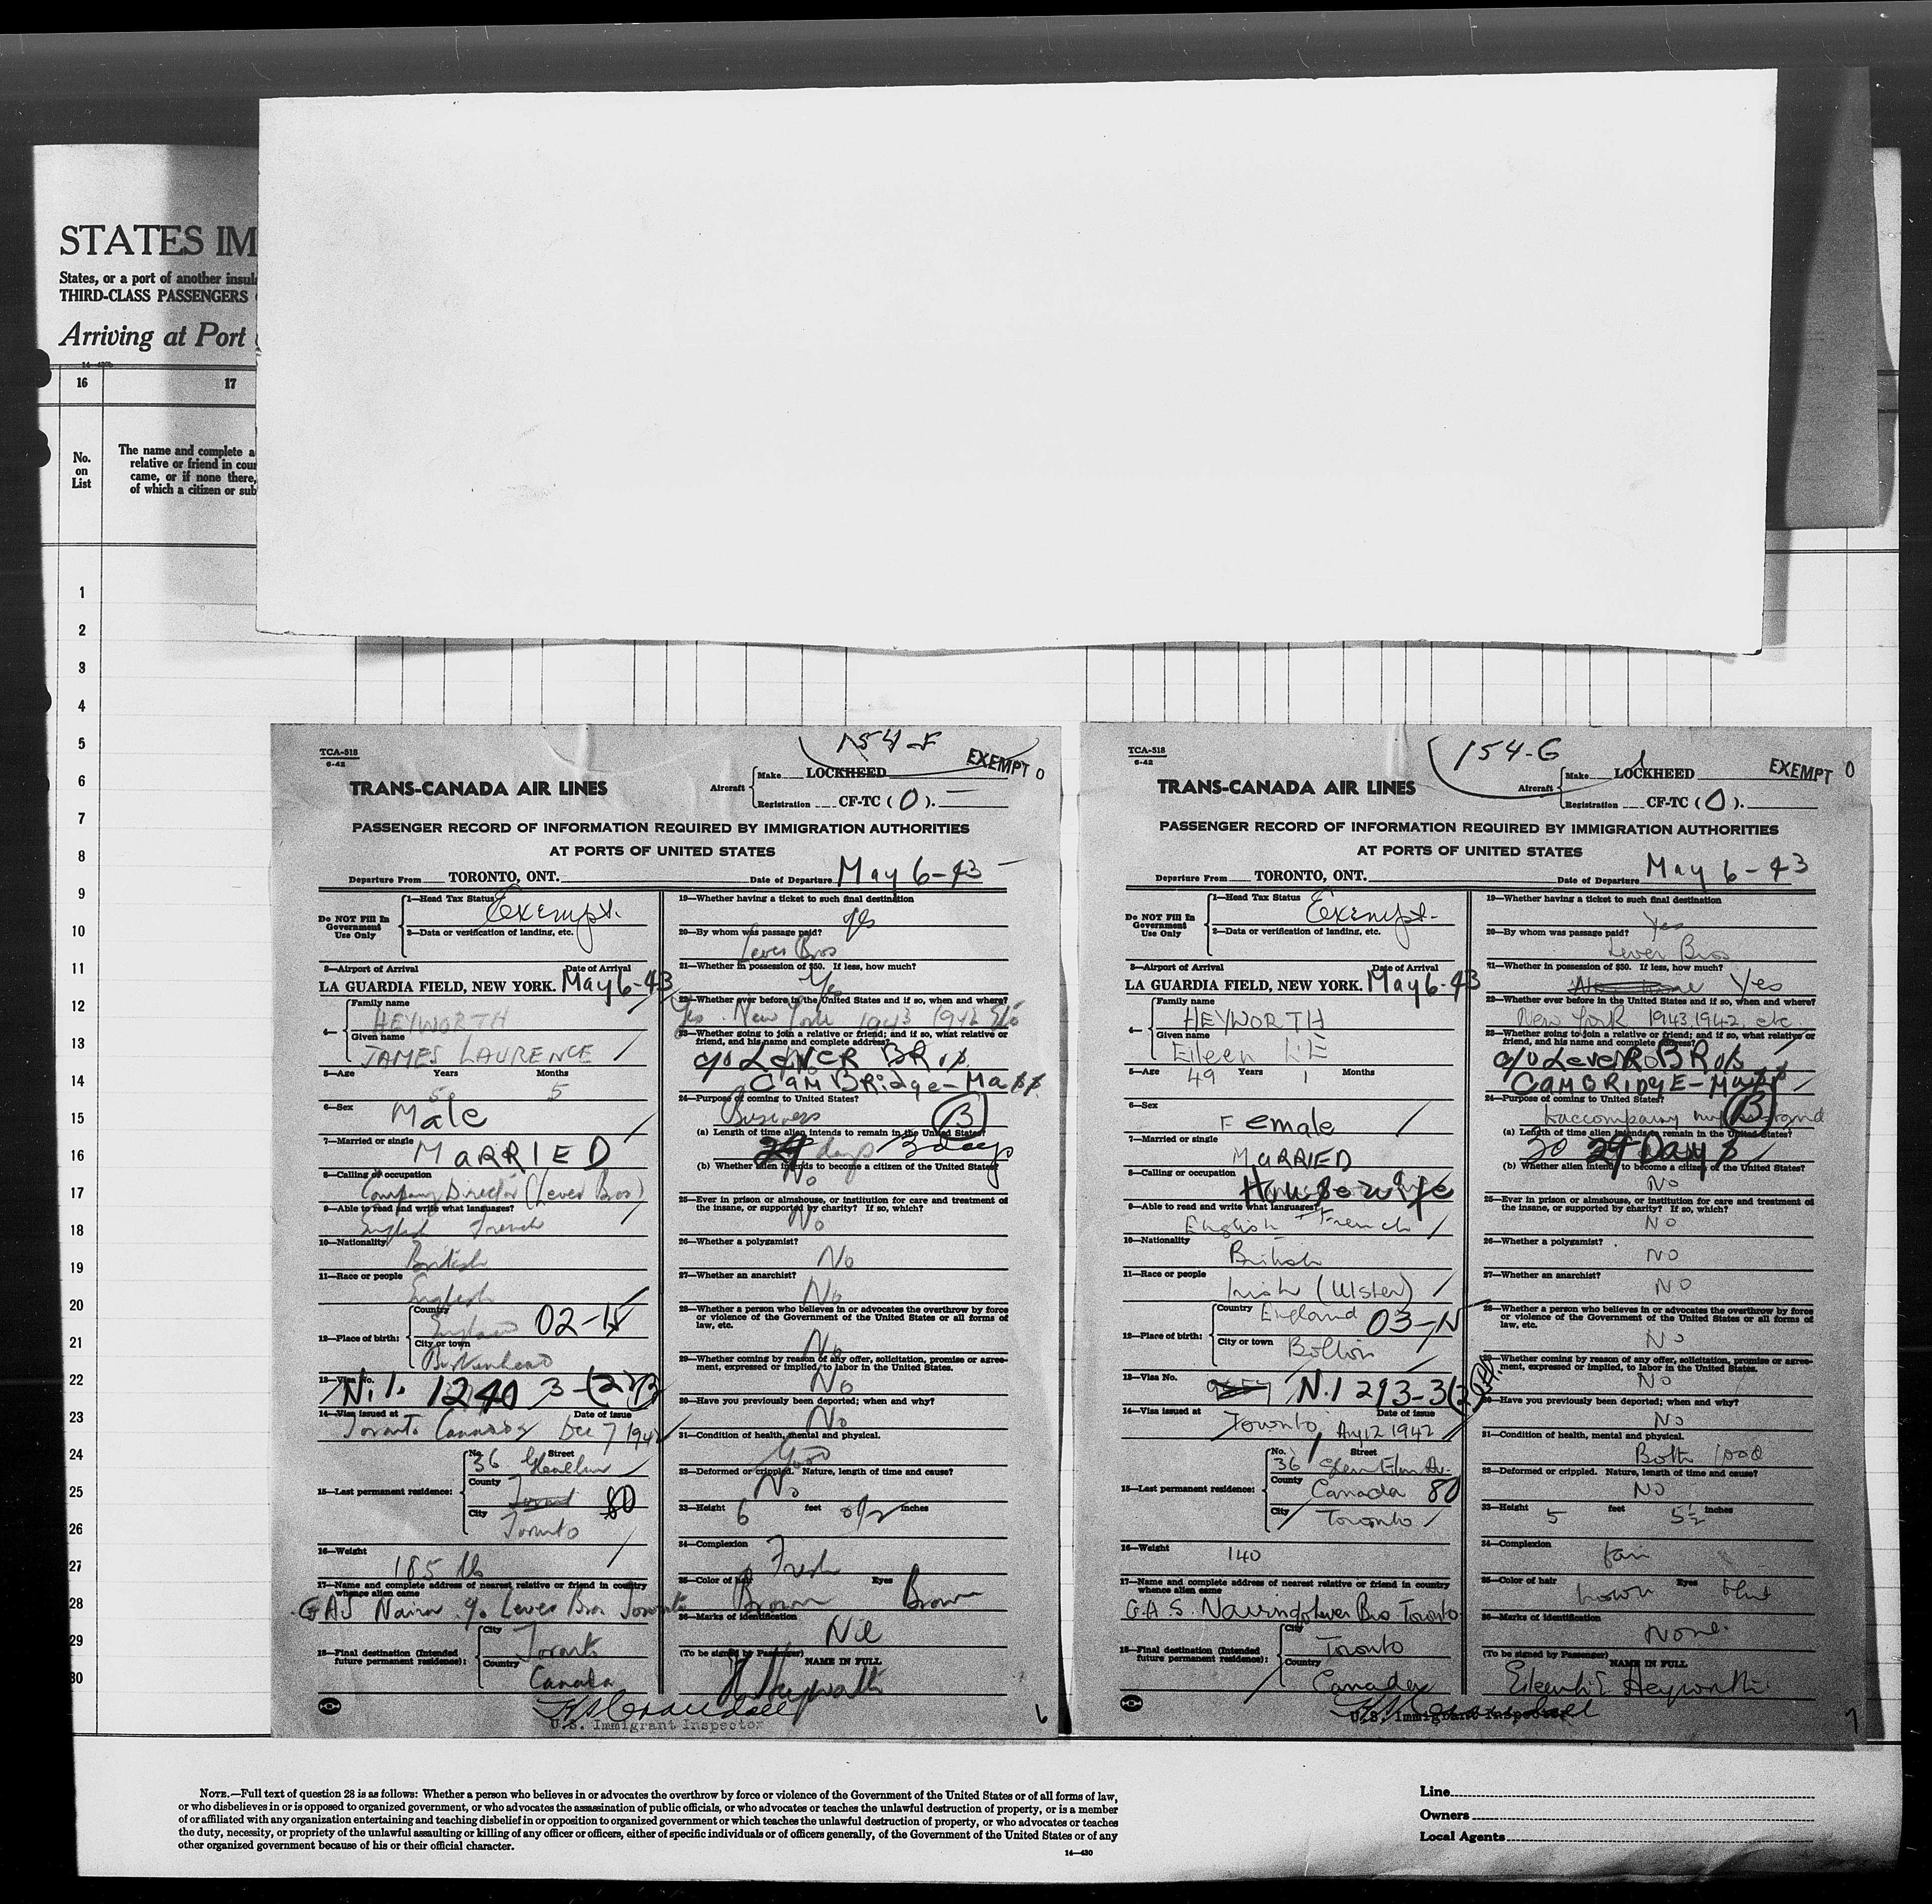 STATES IM
States, or a port of another insul
THIRD-CLASS PASSENGERS
Arriving at Port
16
17
No.
on
List
The name and complete a
relative or friend in coun
came, or if none there,
of which a citizen or sub
1
2
3
4
5
6
7
8
9
10
11
12
13
14
15
16
17
18
19
20
21
22
23
24
25
26
27
28
29
30
TCA-518
6-42
154-F
EXEMPT 0
TRANS-CANADA AIR LINES
Aircraft
Make LOCKHEED
Registration CF-TC (O).
PASSENGER RECORD OF INFORMATION REQUIRED BY IMMIGRATION AUTHORITIES
AT PORTS OF UNITED STATES
Departure From TORONTO, ONT. Date of Departure May 6-43
Do NOT Fill In
Government
Use Only
1—Head Tax Status Exempt.
2—Data or verification of landing, etc.
3—Airport of Arrival Date of Arrival
LA GUARDIA FIELD, NEW YORK. May 6-43
4—
Family name
HEYWORTH
Given name
JAMES LAURENCE
5—Age Years Months
5
6—Sex
Male
7—Married or single
MARRIED
8—Calling or occupation
Company Director (Lever Bros)
9—Able to read and write what languages?
English French
10—Nationality
British
11—Race or people
English
12—Place of birth:
Country
England 02-15
City or town
Birkenhead
13—Visa No.
N.I. 1240 3-(2)B
14—Visa issued at Date of issue
Toronto Canada Dec 7 1942
15—Last permanent residence:
No. Street
36
County
80
City
Toronto
16—Weight
185 lb
17—Name and complete address of nearest relative or friend in country
whence alien came
G A S Nairn c/o Lever Bros Toronto
18—Final destination (Intended
future permanent residence):
City
Toronto
Country
Canada
19—Whether having a ticket to such final destination
yes
20—By whom was passage paid?
Lever Bros
21—Whether in possession of $50. If less, how much?
Yes
22—Whether ever before in the United States and if so, when and where?
Yes. New York 1943 1942 etc
23—Whether going to join a relative or friend; and if so, what relative or
friend, and his name and complete address?
No
c/o LeveR BRos.
CamBRidge-Mass.
24—Purpose of coming to United States?
Business B
(a) Length of time alien intends to remain in the United States?
29 days 3 days
(b) Whether alien intends to become a citizen of the United States?
No
25—Ever in prison or almshouse, or institution for care and treatment of
the insane, or supported by charity? If so, which?
No
26—Whether a polygamist?
No
27—Whether an anarchist?
No
28—Whether a person who believes in or advocates the overthrow by force
or violence of the Government of the United States or all forms of
law, etc.
No
29—Whether coming by reason of any offer, solicitation, promise or agree-
ment, expressed or implied, to labor in the United States.
No
30—Have you previously been deported; when and why?
No
31—Condition of health, mental and physical.
Good
32—Deformed or crippled. Nature, length of time and cause?
No
33—Height 6 feet 0 1/2 inches
34—Complexion
Fresh
35—Color of hair Eyes
Brown Brown
36—Marks of identification
Nil
(To be signed by Passenger)
NAME IN FULL
Heyworth
U.S. Immigrant Inspector
6
TCA-518
6-42
154-G
EXEMPT 0
TRANS-CANADA AIR LINES
Aircraft
Make LOCKHEED
Registration CF-TC (O).
PASSENGER RECORD OF INFORMATION REQUIRED BY IMMIGRATION AUTHORITIES
AT PORTS OF UNITED STATES
Departure From TORONTO, ONT. Date of Departure May 6-43
Do NOT Fill In
Government
Use Only
1—Head Tax Status Exempt.
2—Data or verification of landing, etc.
3—Airport of Arrival Date of Arrival
LA GUARDIA FIELD, NEW YORK. May 6-43
4—
Family name
HEYWORTH
Given name
Eileen
5—Age 49 Years 1 Months
6—Sex
Female
7—Married or single
MARRIED
8—Calling or occupation
Housewife
9—Able to read and write what languages?
English - French
10—Nationality
British
11—Race or people
Irish (Ulster)
12—Place of birth:
Country
England 03-15
City or town
Bolton
13—Visa No.
N.I 293-3(2)
14—Visa issued at Date of issue
Toronto, Aug 12 1942
15—Last permanent residence:
No. Street
36 Glen Elm Av.
County
Canada 80
City
Toronto
16—Weight
140
17—Name and complete address of nearest relative or friend in country
whence alien came
G.A.S. Nairn c/o Lever Bros Toronto.
18—Final destination (Intended
future permanent residence):
City
Toronto
Country
Canada
19—Whether having a ticket to such final destination
Yes
20—By whom was passage paid?
Lever Bros
21—Whether in possession of $50. If less, how much?
Yes
22—Whether ever before in the United States and if so, when and where?
New York 1943 1942 etc
23—Whether going to join a relative or friend; and if so, what relative or
friend, and his name and complete address?
No
c/o LeveR BRos
CAMBRIDgE-Mass
24—Purpose of coming to United States?
to accompany my husband B
(a) Length of time alien intends to remain in the United States?
30 29 Days
(b) Whether alien intends to become a citizen of the United States?
No
25—Ever in prison or almshouse, or institution for care and treatment of
the insane, or supported by charity? If so, which?
NO
26—Whether a polygamist?
NO
27—Whether an anarchist?
NO
28—Whether a person who believes in or advocates the overthrow by force
or violence of the Government of the United States or all forms of
law, etc.
No
29—Whether coming by reason of any offer, solicitation, promise or agree-
ment, expressed or implied, to labor in the United States.
No
30—Have you previously been deported; when and why?
No
31—Condition of health, mental and physical.
Both good
32—Deformed or crippled. Nature, length of time and cause?
NO
33—Height 5 feet 5½ inches
34—Complexion
fair
35—Color of hair Eyes
brown blue
36—Marks of identification
None.
(To be signed by Passenger)
NAME IN FULL
Heyworth
U.S. Immigrant Inspector
7
NOTE.—Full text of question 28 is as follows: Whether a person who believes in or advocates the overthrow by force or violence of the Government of the United States or of all forms of law,
or who disbelieves in or is opposed to organized government, or who advocates the assassination of public officials, or who advocates or teaches the unlawful destruction of property, or is a member
of or affiliated with any organization entertaining and teaching disbelief in or opposition to organized government or which teaches the unlawful destruction of property, or who advocates or teaches
the duty, necessity, or propriety of the unlawful assaulting or killing of any officer or officers, either of specific individuals or of officers generally, of the Government of the United States or of any
other organized government because of his or their official character.
14—430
Line
Owners
Local Agents